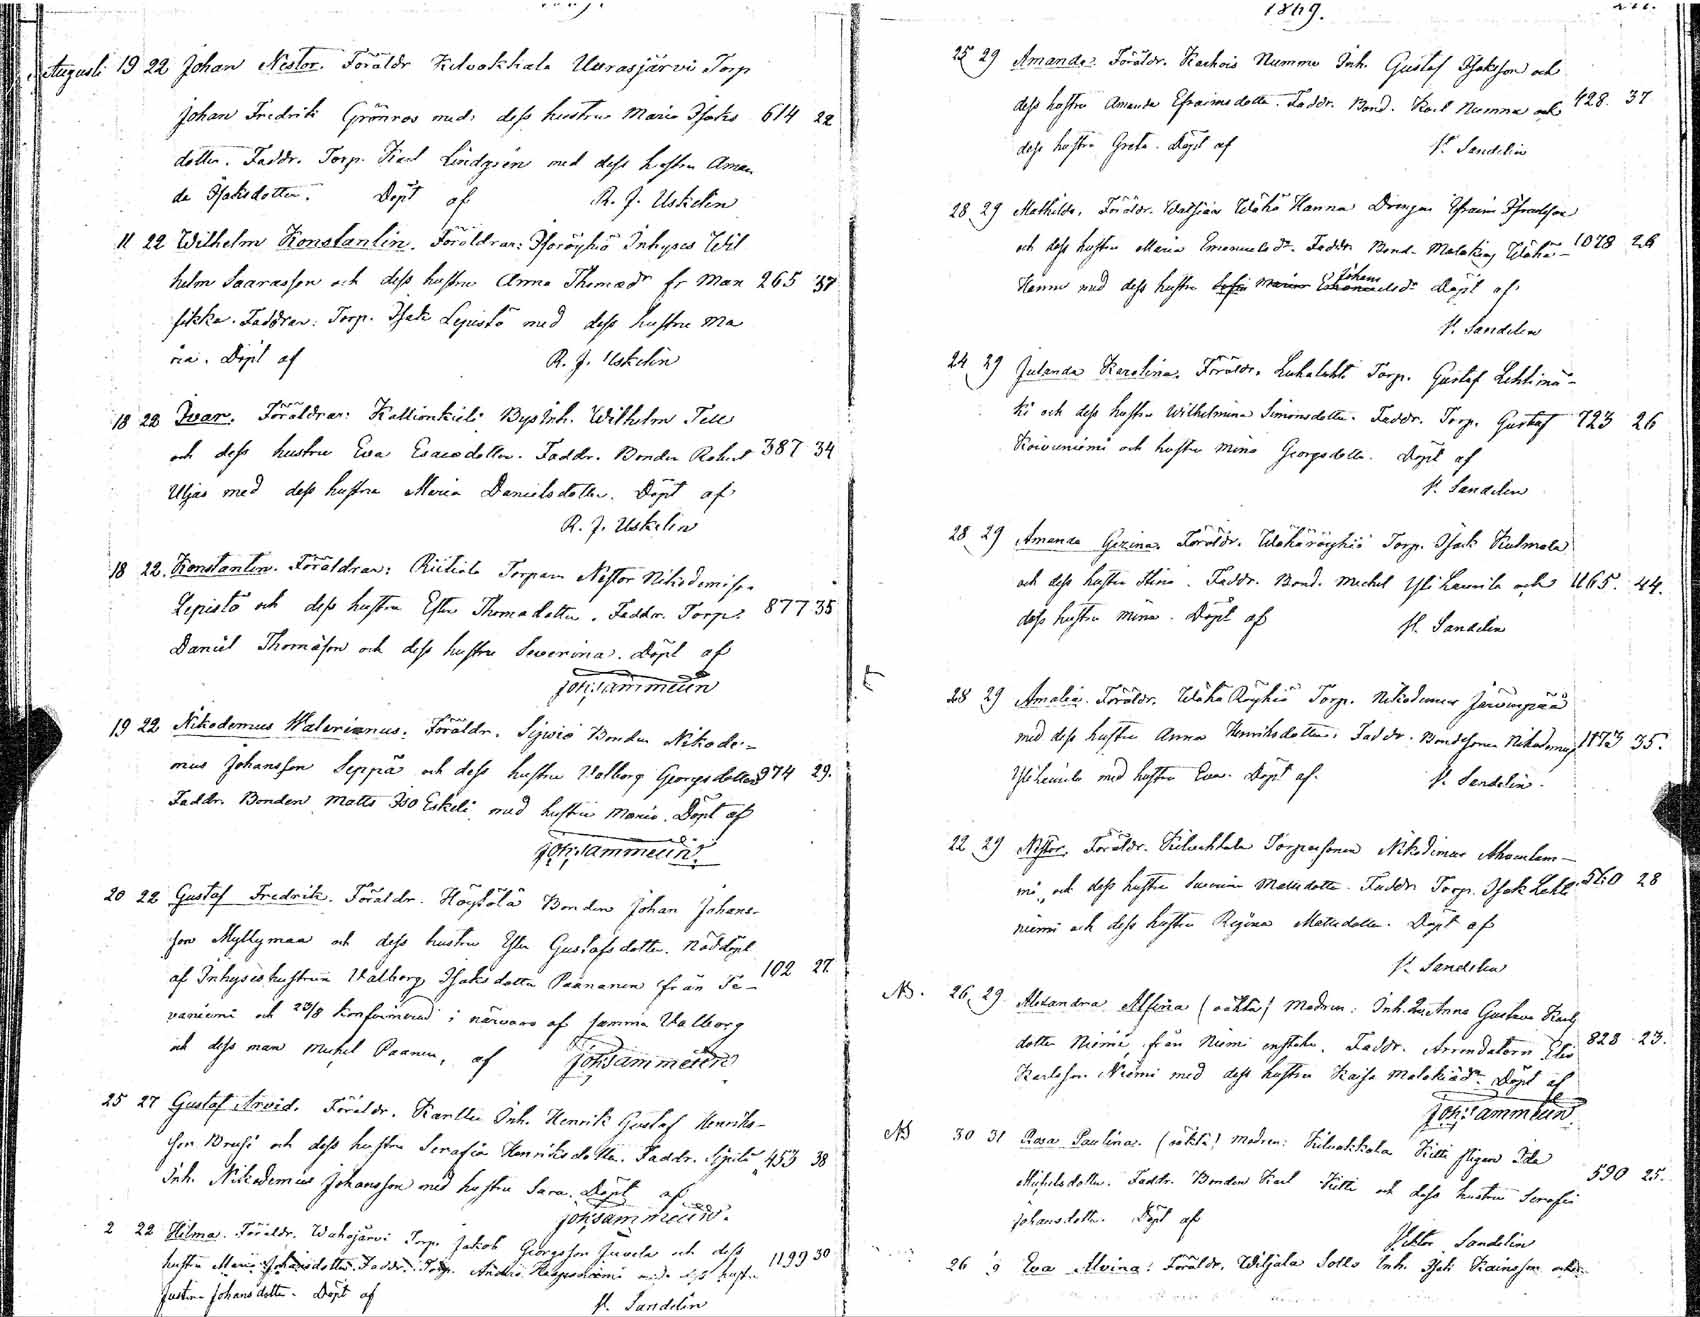 Augusti 19 22 Johan Nestor. Föräldr Kilvakkala Uurasjärvi Torp
Johan Fredrik Grönros med dess hustru Maria Isaks 614 22
dotter. Faddr. Torp. Karl Lindgrén med dess hustru Aman
da Isaksdotter. Döpt af R. J. Uskelin
11 22 Wilhelm Konstantin. Föräldrar: Isoröyhiö Inhyses Wil
helm Saarasson och dess hustru Anna Thomasdr fr Man 265 37
sikka. Faddrar: Torp. Isak Lepistö med dess hustru Ma
ria. Döpt af R. J. Uskelin
18 22 Ivar. Föräldrar: Kallionkieli Bys Inh. Wilhelm Tell
och dess hustru Eva Esaiedotter. Faddr. Bonden Robert 387 34
Uljas med dess hustru Maria Danielsdotter. Döpt af
R. J. Uskelin
18 22. Konstantin. Föräldrar: Riitiala Torparn Nestor Nikodemiss.
Lepistö och dess hustru Ester Thomasdotter. Faddr. Torp. 877 35
Daniel Thomasson och dess hustru Severina. Döpt af
Joh. Sammelin
19 22 Nikodemus Walerianus. Föräldr. Sipuro Bonden Nikode-
mus Johansson Seppä och dess hustru Valborg Georgsdotter 974 29.
Faddr. Bonden Matts Iso Eskeli med hustru Maria. Döpt af
Joh. Sammelin
20 22 Gustaf Fredrik. Föräldr. Höytölä Bonden Johan Johans-
son Myllymaa och dess hustru Ester Gustafsdotter. Nöddöpt
af Inhyseshustrun Valborg Isaksdotter Paananen från Ta- 102 27.
vaniemi och 23/8 konfirmerad i närvaro af samma Valborg
och dess man Michel Paanan, af Joh. Sammelin
25 27 Gustaf Arvid. Föräldr. Karttu Inh. Henrik Gustaf Henriks-
son Brusi och dess hustru Serafia Henriksdotter. Faddr. Sipilä 453 38
Inh. Nikodemus Johansson med hustru Sara. Döpt af
Joh. Sammelin.
2 22 Hilma. Föräldr. Wahojärvi Torp. Jakob Georgsson Juvela och dess
hustru Maria Johansdotter. Faddr. Torp. Anders Haapaniemi med dess hustru 1199 30
Justina Johansdotter. Döpt af V. Sandelin
1869.
25 29 Amanda. Föräldr. Karhois Numme Inh. Gustaf Isaksson och
dess hustru Amanda Efraimsdotter. Faddr. Bond. Karl Numma och 428. 37
dess hustru Greta. Döpt af V. Sandelin
28 29 Mathilda. Föräldr. Wähä Hanna Drengen Efraim
och dess hustru Maria Emanuelsdr. Faddr. Bond. Malakias Wähä- 1078 26
Hanna med dess hustru Johansdr Döpt af
V. Sandelin
24 29 Julanda Karolina. Föräldr. Luhalahti Torp. Gustaf Lehtimä-
ki och dess hustru Wilhelmina Simonsdotter. Faddr. Torp. Gustaf 723 26
Koivuniemi och hustru Mina Georgsdotter. Döpt af
V. Sandelin
28 29 Amanda Gezina. Föräldr. Wähäröyhiö Torp. Isak Kulmala
och dess hustru Stina. Faddr. Bond. Michel Yli Laurila och 1165. 44.
dess hustru Mina. Döpt af V. Sandelin
28 29 Amalia. Föräldr. Wähä Röyhiö Torp. Nikodemus Järvenpää
med dess hustru Anna Henriksdotter. Faddr. Bondesonen Nikodemus 1173 35.
Yli Laurila med hustru Eva. Döpt af. V. Sandelin.
22 29 Nestor. Föräldr. Kilvakkala Torparsonen Nikodemus Ahvenlam-
mi, och dess hustru Severina Mattsdotter. Faddr. Torp. Isak Lehti 560 28
niemi och dess hustru Regina Mattsdotter. Döpt af
V. Sandelin
NB. 26 29 Alexandra Alfina (oäkta) Modren: Inh. Anna Gustava Karls
dotter Niemi, från Niemi enstaka. Faddr. Arrendatorn Elis 828 23.
Karlsson Niemi med dess hustru Kaisa Malakiasdr. Döpt af
Joh. Sammelin
NB 30 31 Rosa Paulina. (oäkta) Modren: Kilvakkala Kitti pigan Ida
Michelsdotter. Faddr. Bonden Karl Kitti och dess hustru Serafia 590 25.
Johansdotter. Döpt af
Viktor Sandelin
26 Eva Alvina. Föräldr. Wiljala Inh. Isak Kainsson och